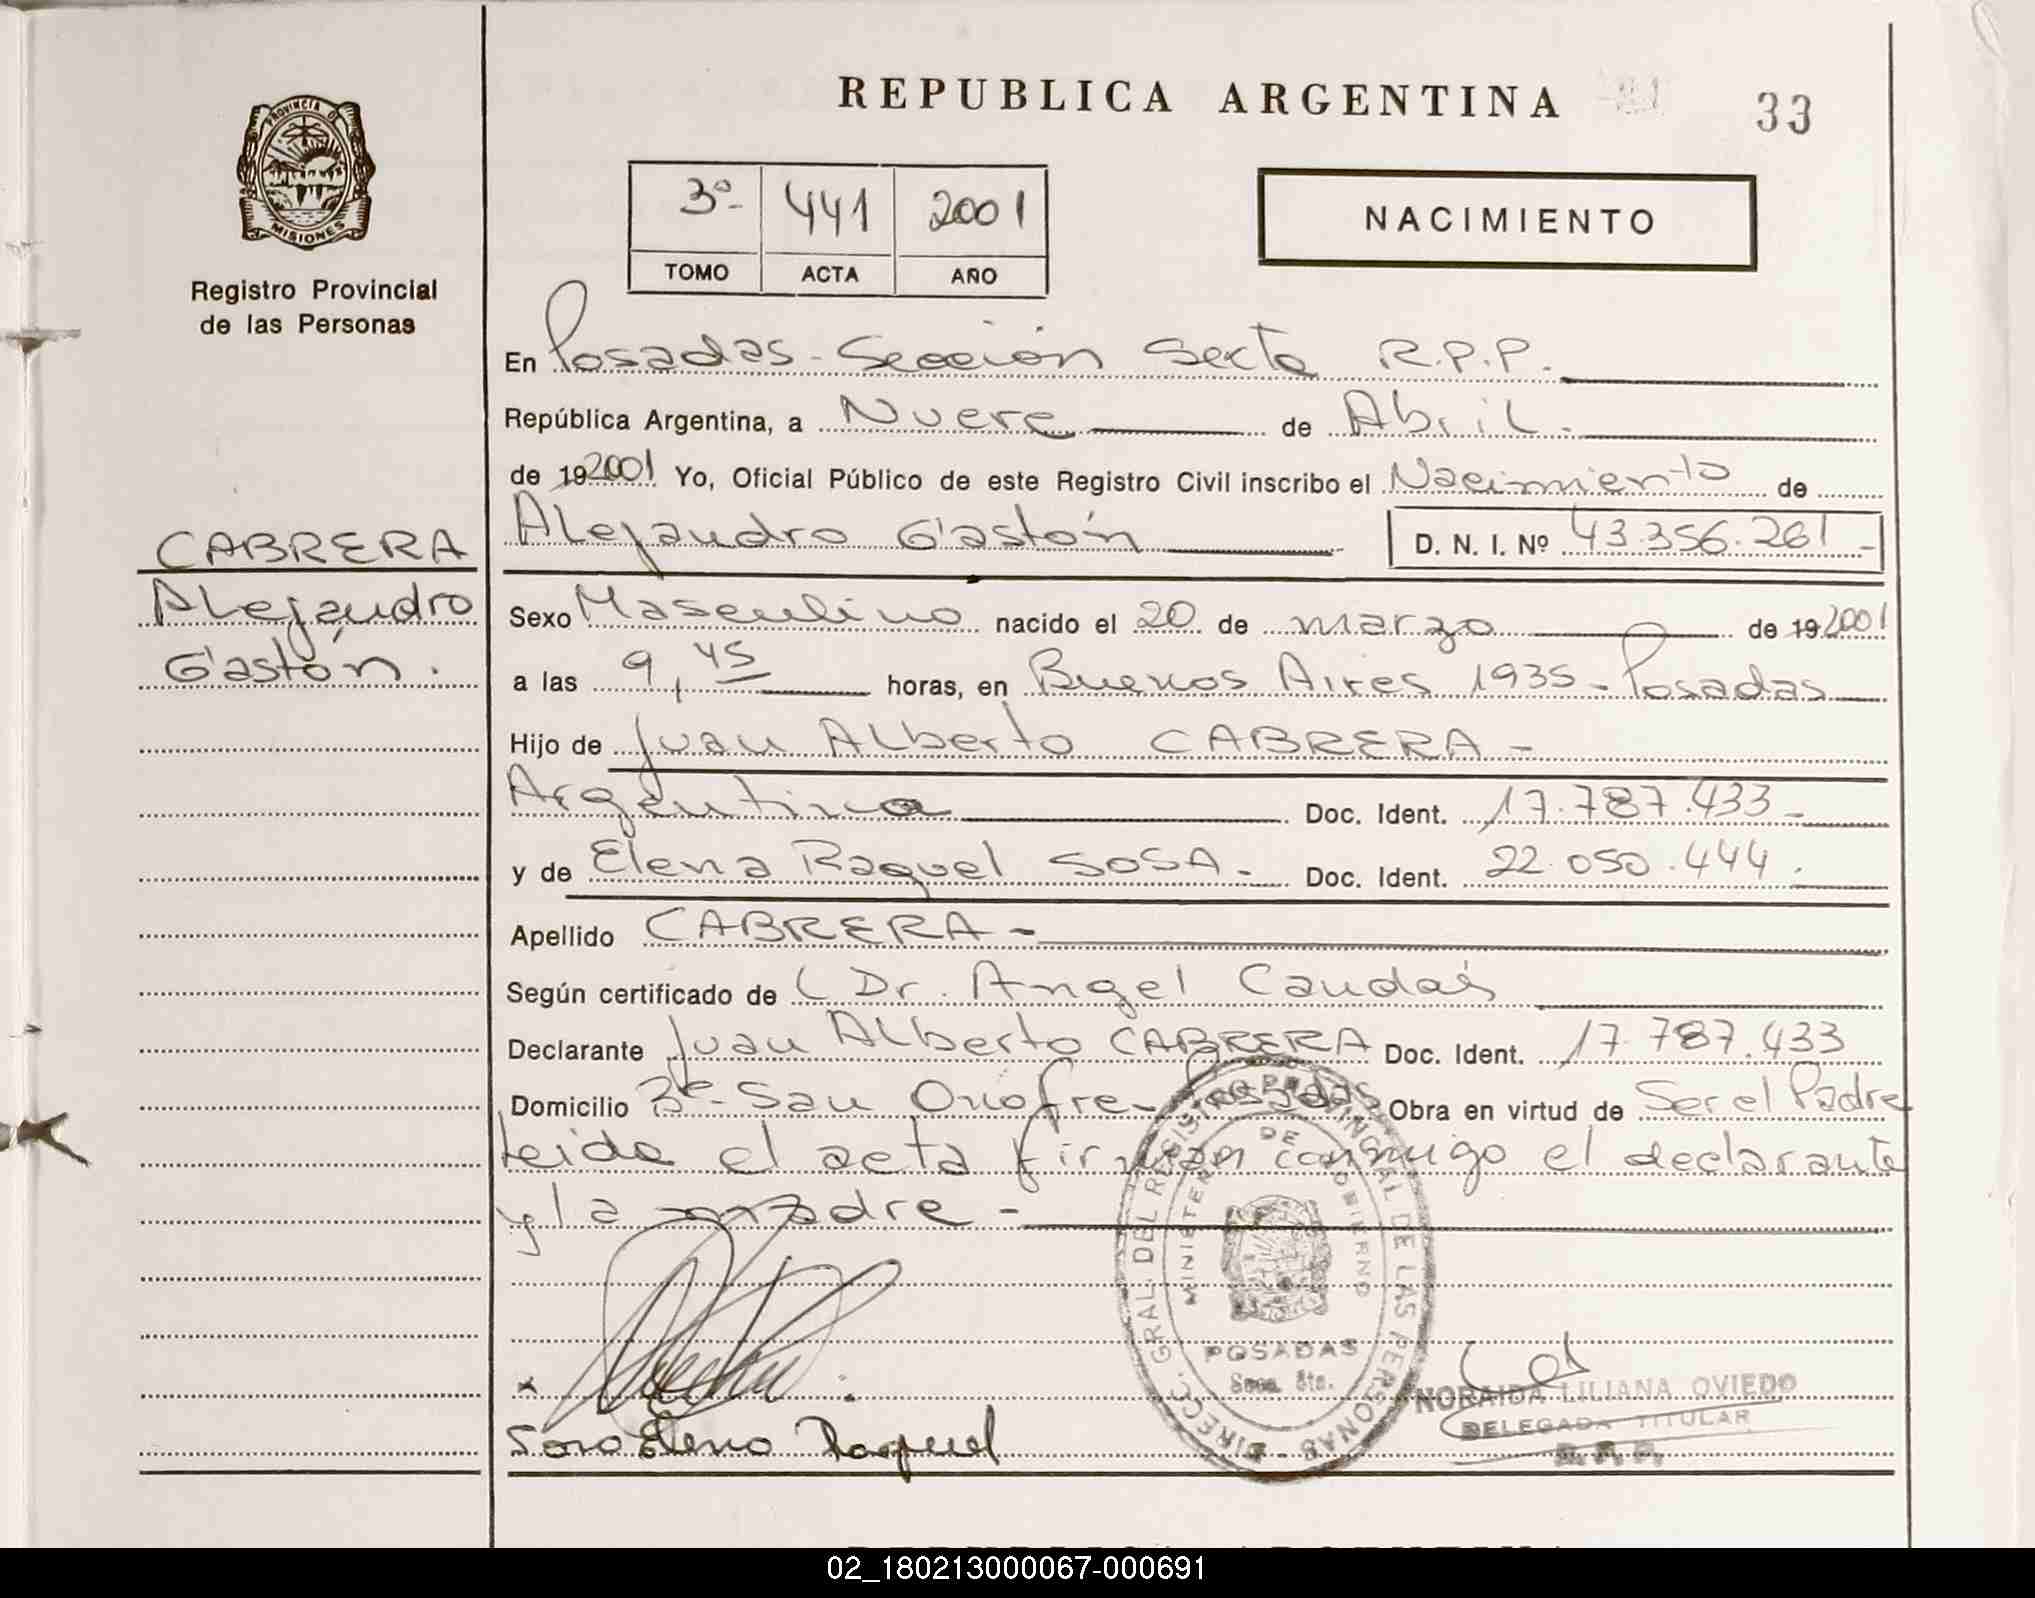 REPUBLICA ARGENTINA
33
PROVINCIA D
MISIONES
Registro Provincial
de las Personas
3º- 441 2001
TOMO ACTA AÑO
NACIMIENTO
En Posadas - Sección Secta R.P.P.
República Argentina, a Nueve de Abril.
de 19 2001 Yo, Oficial Público de este Registro Civil inscribo el Nacimiento de
Alejandro Gastón D. N. I. Nº 43.356.261-
CABRERA
Alejandro
Gastón.
Sexo Masculino nacido el 20 de marzo de 19 2001
a las 9,45 horas, en Buenos Aires 1935 - Posadas
Hijo de Juan Alberto CABRERA -
Argentina Doc. Ident. 17.787.433-
y de Elena Raquel SOSA - Doc. Ident. 22.050.444.
Apellido CABRERA -
Según certificado de Dr. Angel
Declarante Juan Alberto CABRERA Doc. Ident. 17.787.433
Domicilio San Onofre - Posadas Obra en virtud de Ser el Padre
leida el acta firman conmigo el declarante
y la madre -
DIRECC. GRAL. DEL REGISTRO PROVINCIAL DE LAS PERSONAS
MINISTERIO DE GOBIERNO
POSADAS
Secc. 6ta.
NORAIDA LILIANA OVIEDO
DELEGADA TITULAR
R.P.P.
Sosa Elena Raquel
02_180213000067-000691